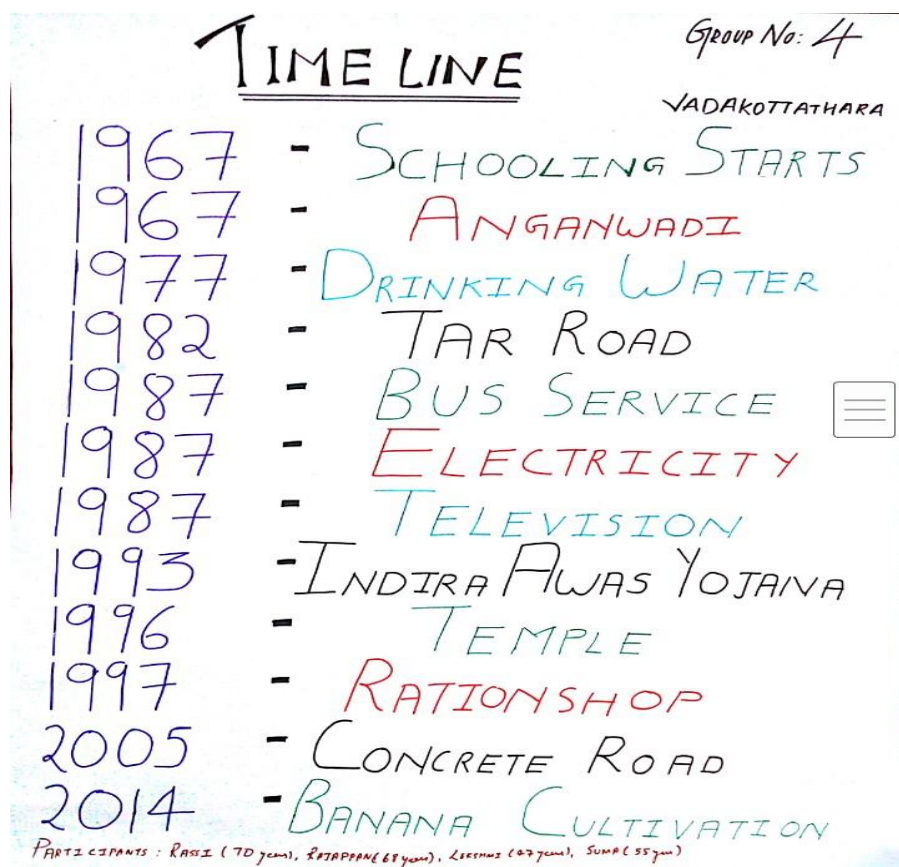 TIME LINE
GROUP No: 4
VADAKOTTATHARA
1967 - SCHOOLING STARTS
1967 - ANGANWADI
1977 - DRINKING WATER
1982 - TAR ROAD
1987 - BUS SERVICE
1987 - ELECTRICITY
1987 - TELEVISION
1993 - INDIRA AWAS YOJANA
1996 - TEMPLE
1997 - RATIONSHOP
2005 - CONCRETE ROAD
2014 - BANANA CULTIVATION
PARTICIPANTS : RASSI (70 years), RAJAPPAN (68 years), LEKSHMI (47 years), SUMA (55 years)